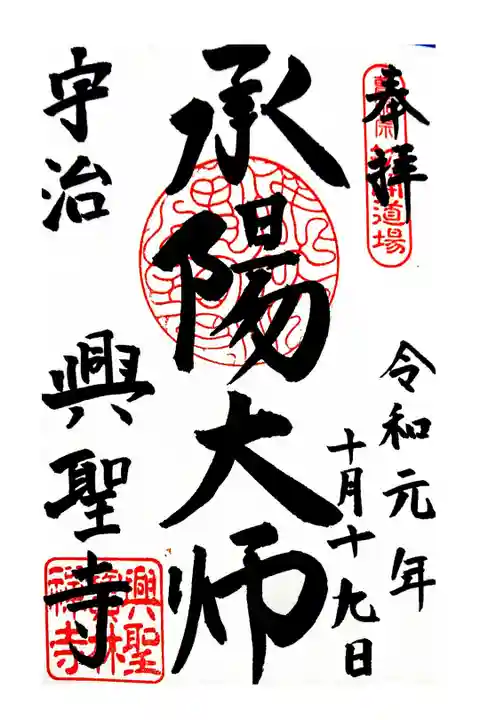 奉拝
道場
令和元年
十月十九日
承陽大师
宇治
興聖寺
興聖
林
禅寺